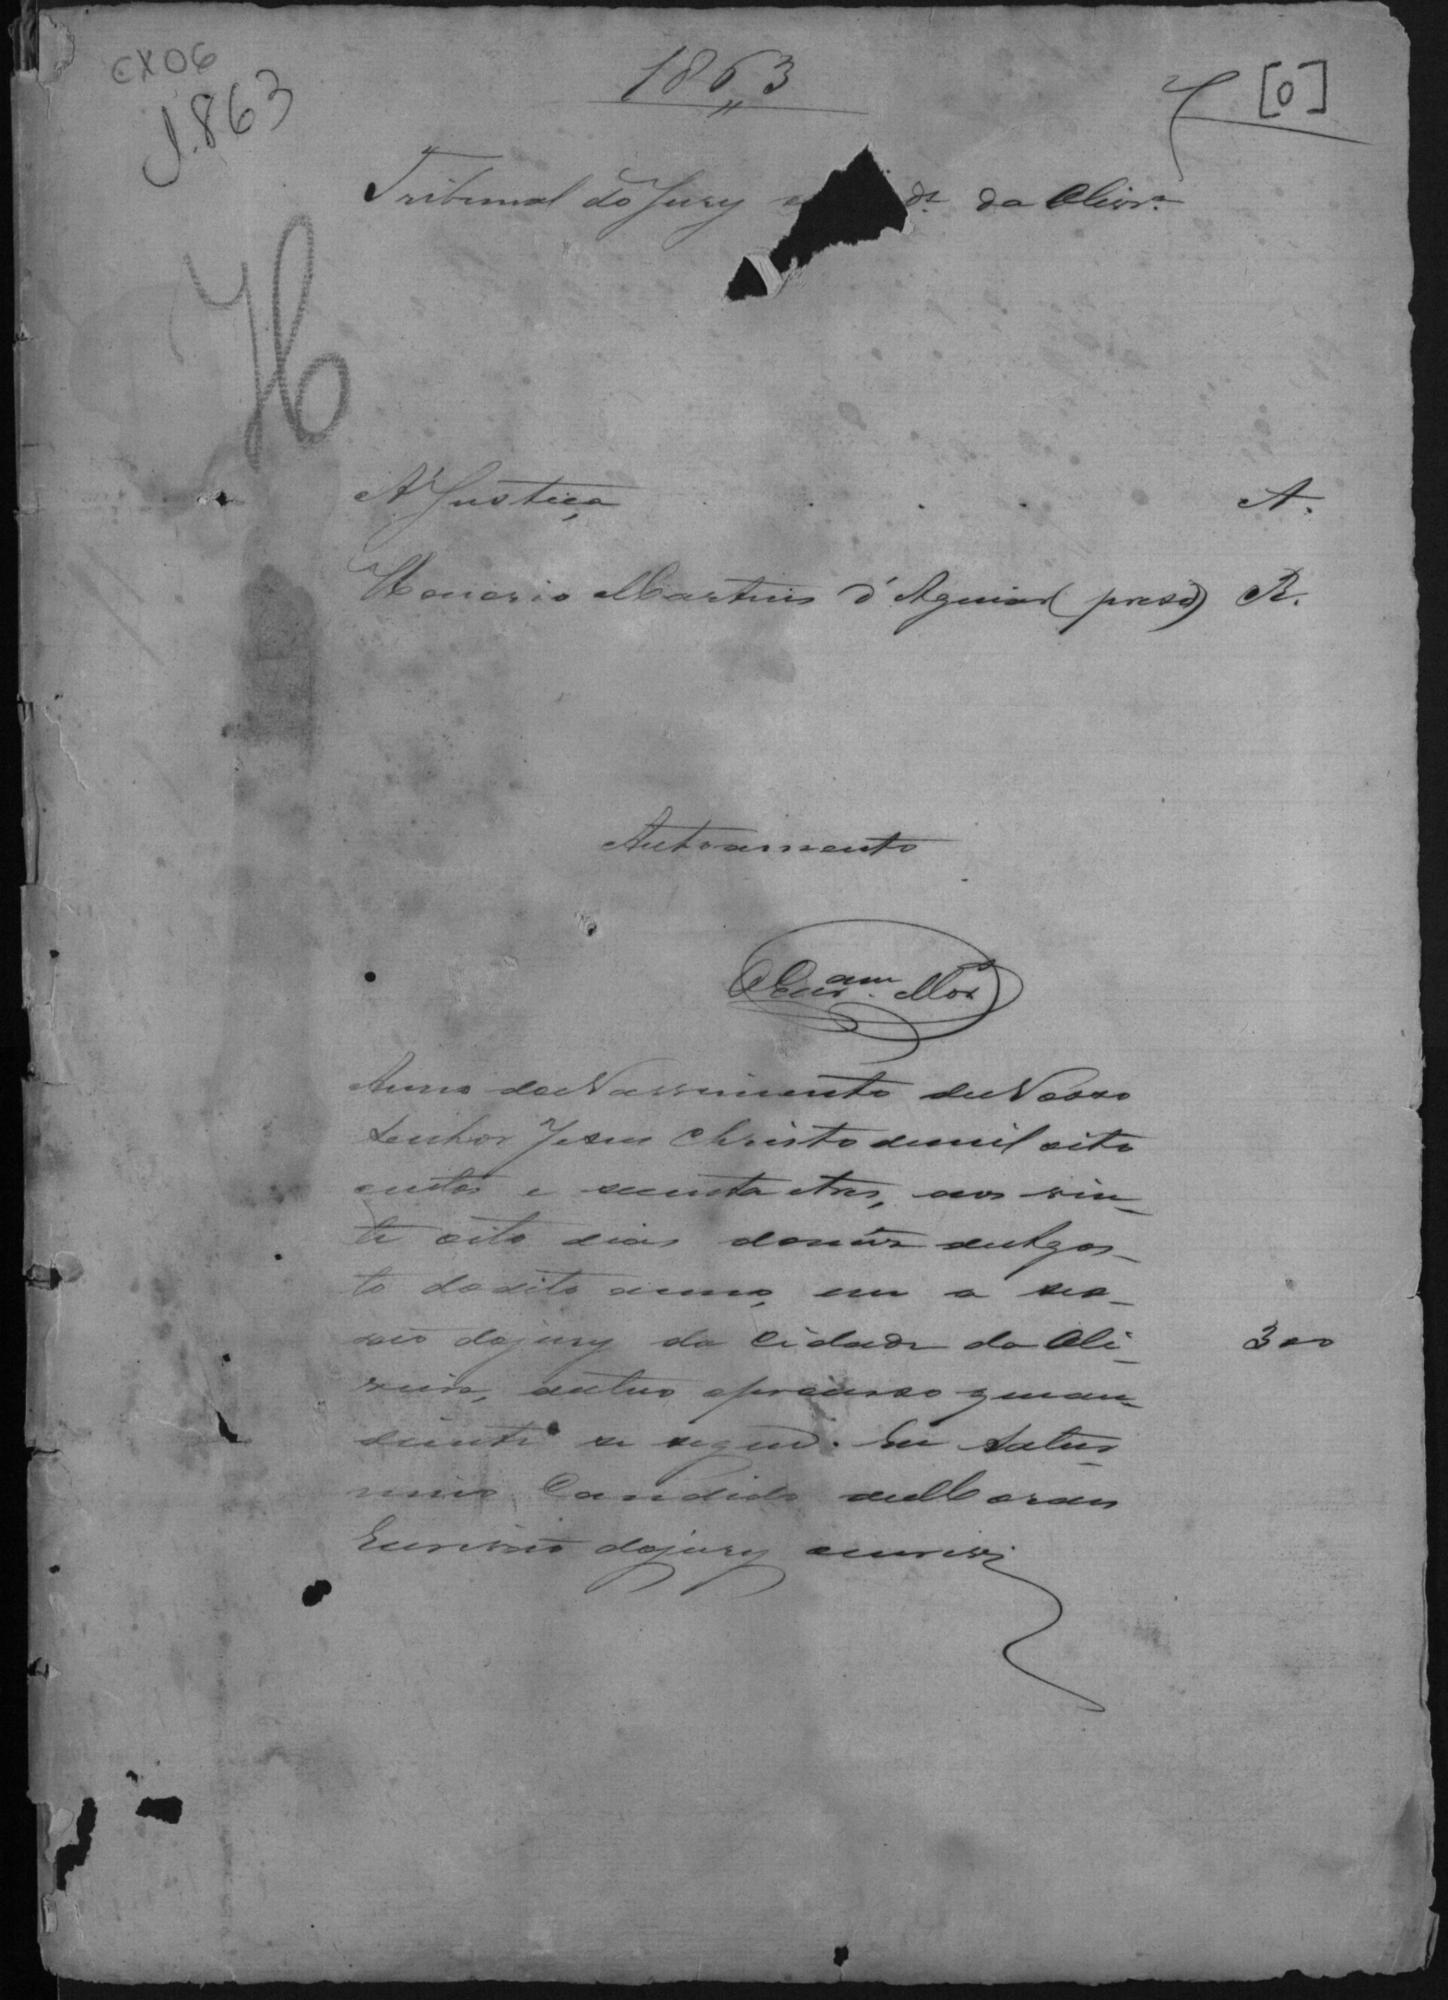 CX06
1863
1863
[0]
Tribunal do Jury da Olivr.ª
H
A Justiça A.
Honorio Martins d'Aguiar (preso) R.
Autoamento
Escr.am Mor.
Anno do Nascimento de Nosso
Senhor Jesus Christo de mil oito
centos e secenta e tres, aos vin_
te oito dias do mez de Agos_
to do dito anno, em a ses_
são do jury da Cidade da Oli_
veira, autuo o processo q
se segue. Eu Satur_
nino Candido de Moraes
Escrivão do jury o escrevi
300